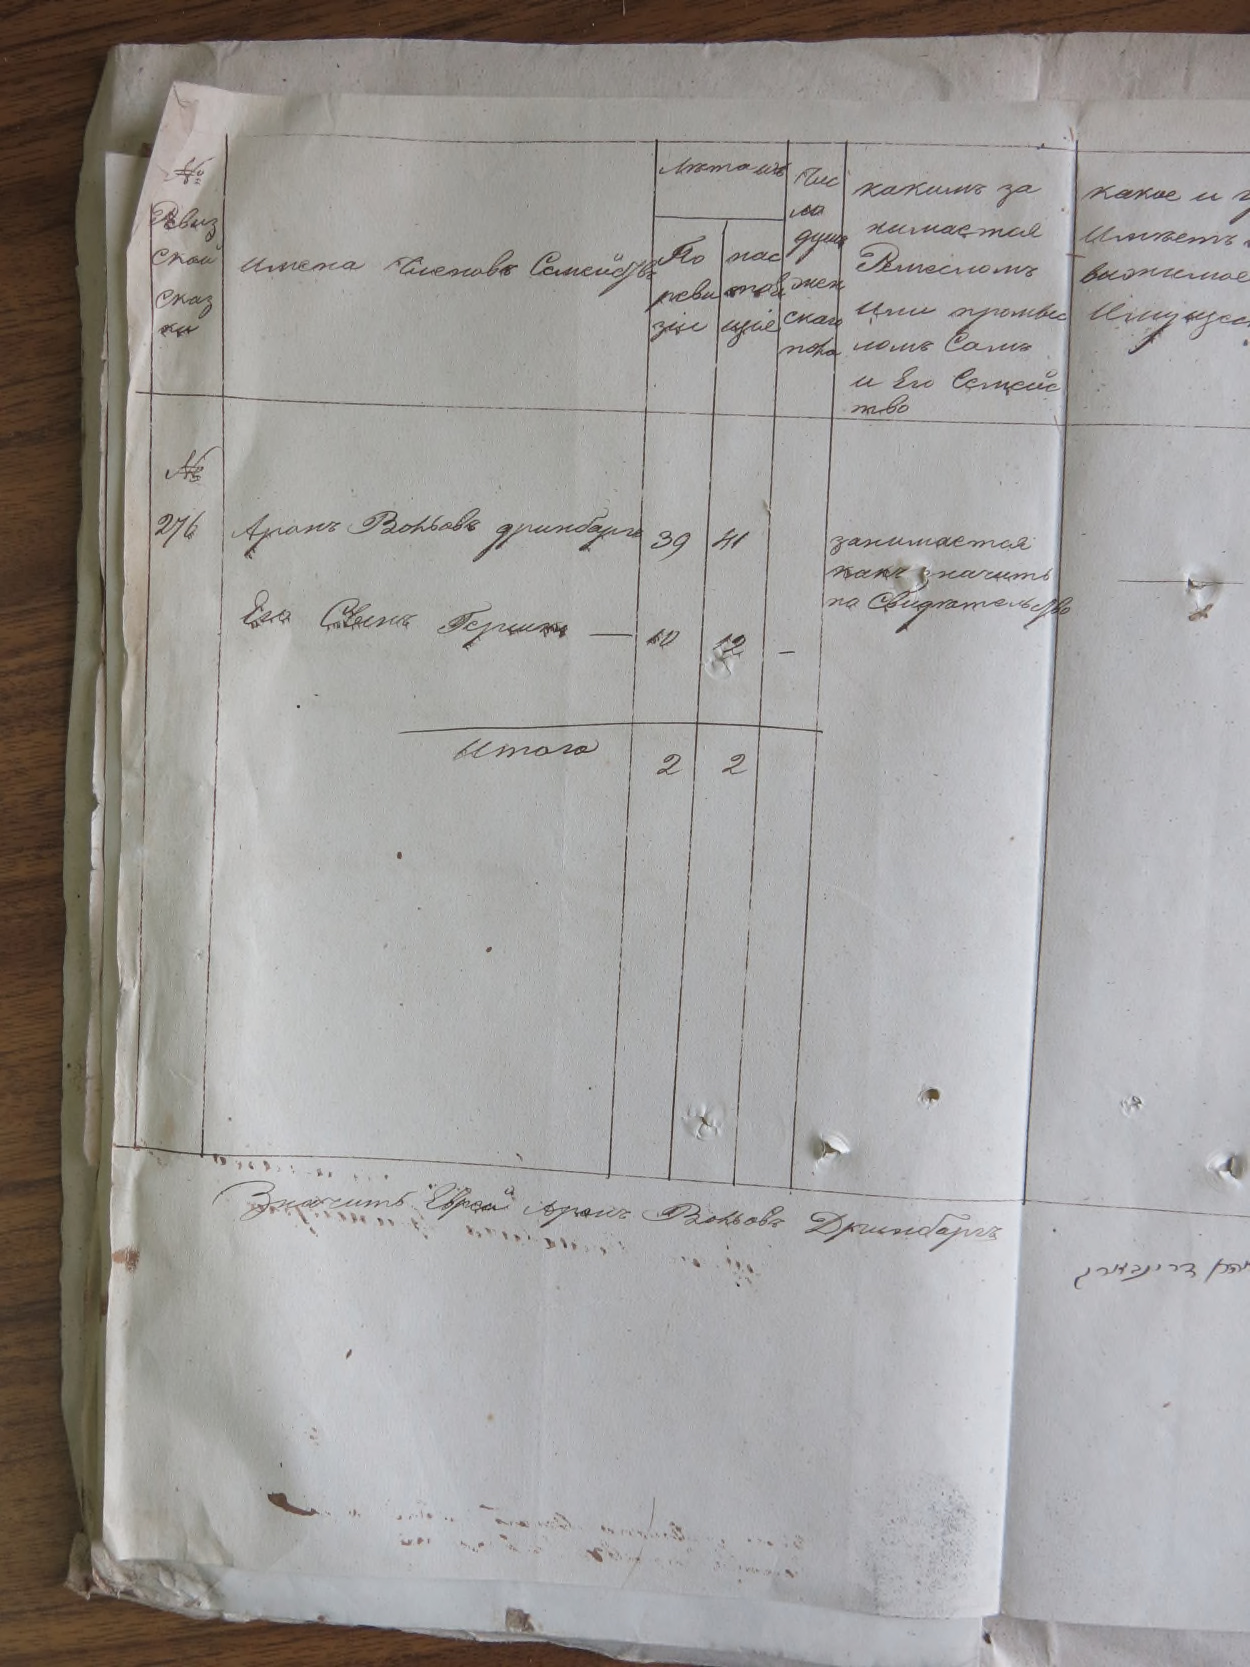 №
Ревиз
ской
сказ
ки
имена членовъ Семейства
лѣтамъ
По
реви
зіи
нас
тоя
щіе
Чис
ло
душъ
жен
скаго
пола
какимъ за
нимается
Ремесломъ
или промыс
ломъ Самъ
и Его Семейс
тво
какое и
Имѣетъ
вижимое
Имущес
№
276 Аронъ Вольовъ дринбаргъ 39 41
занимается
какъ значить
на Свидѣтельство
Его Сынъ Гершко — 10 12 -
Итого 2 2
Значить Еврей Аронъ Вольовъ Дринбаргъ
אהרן דרינבארג